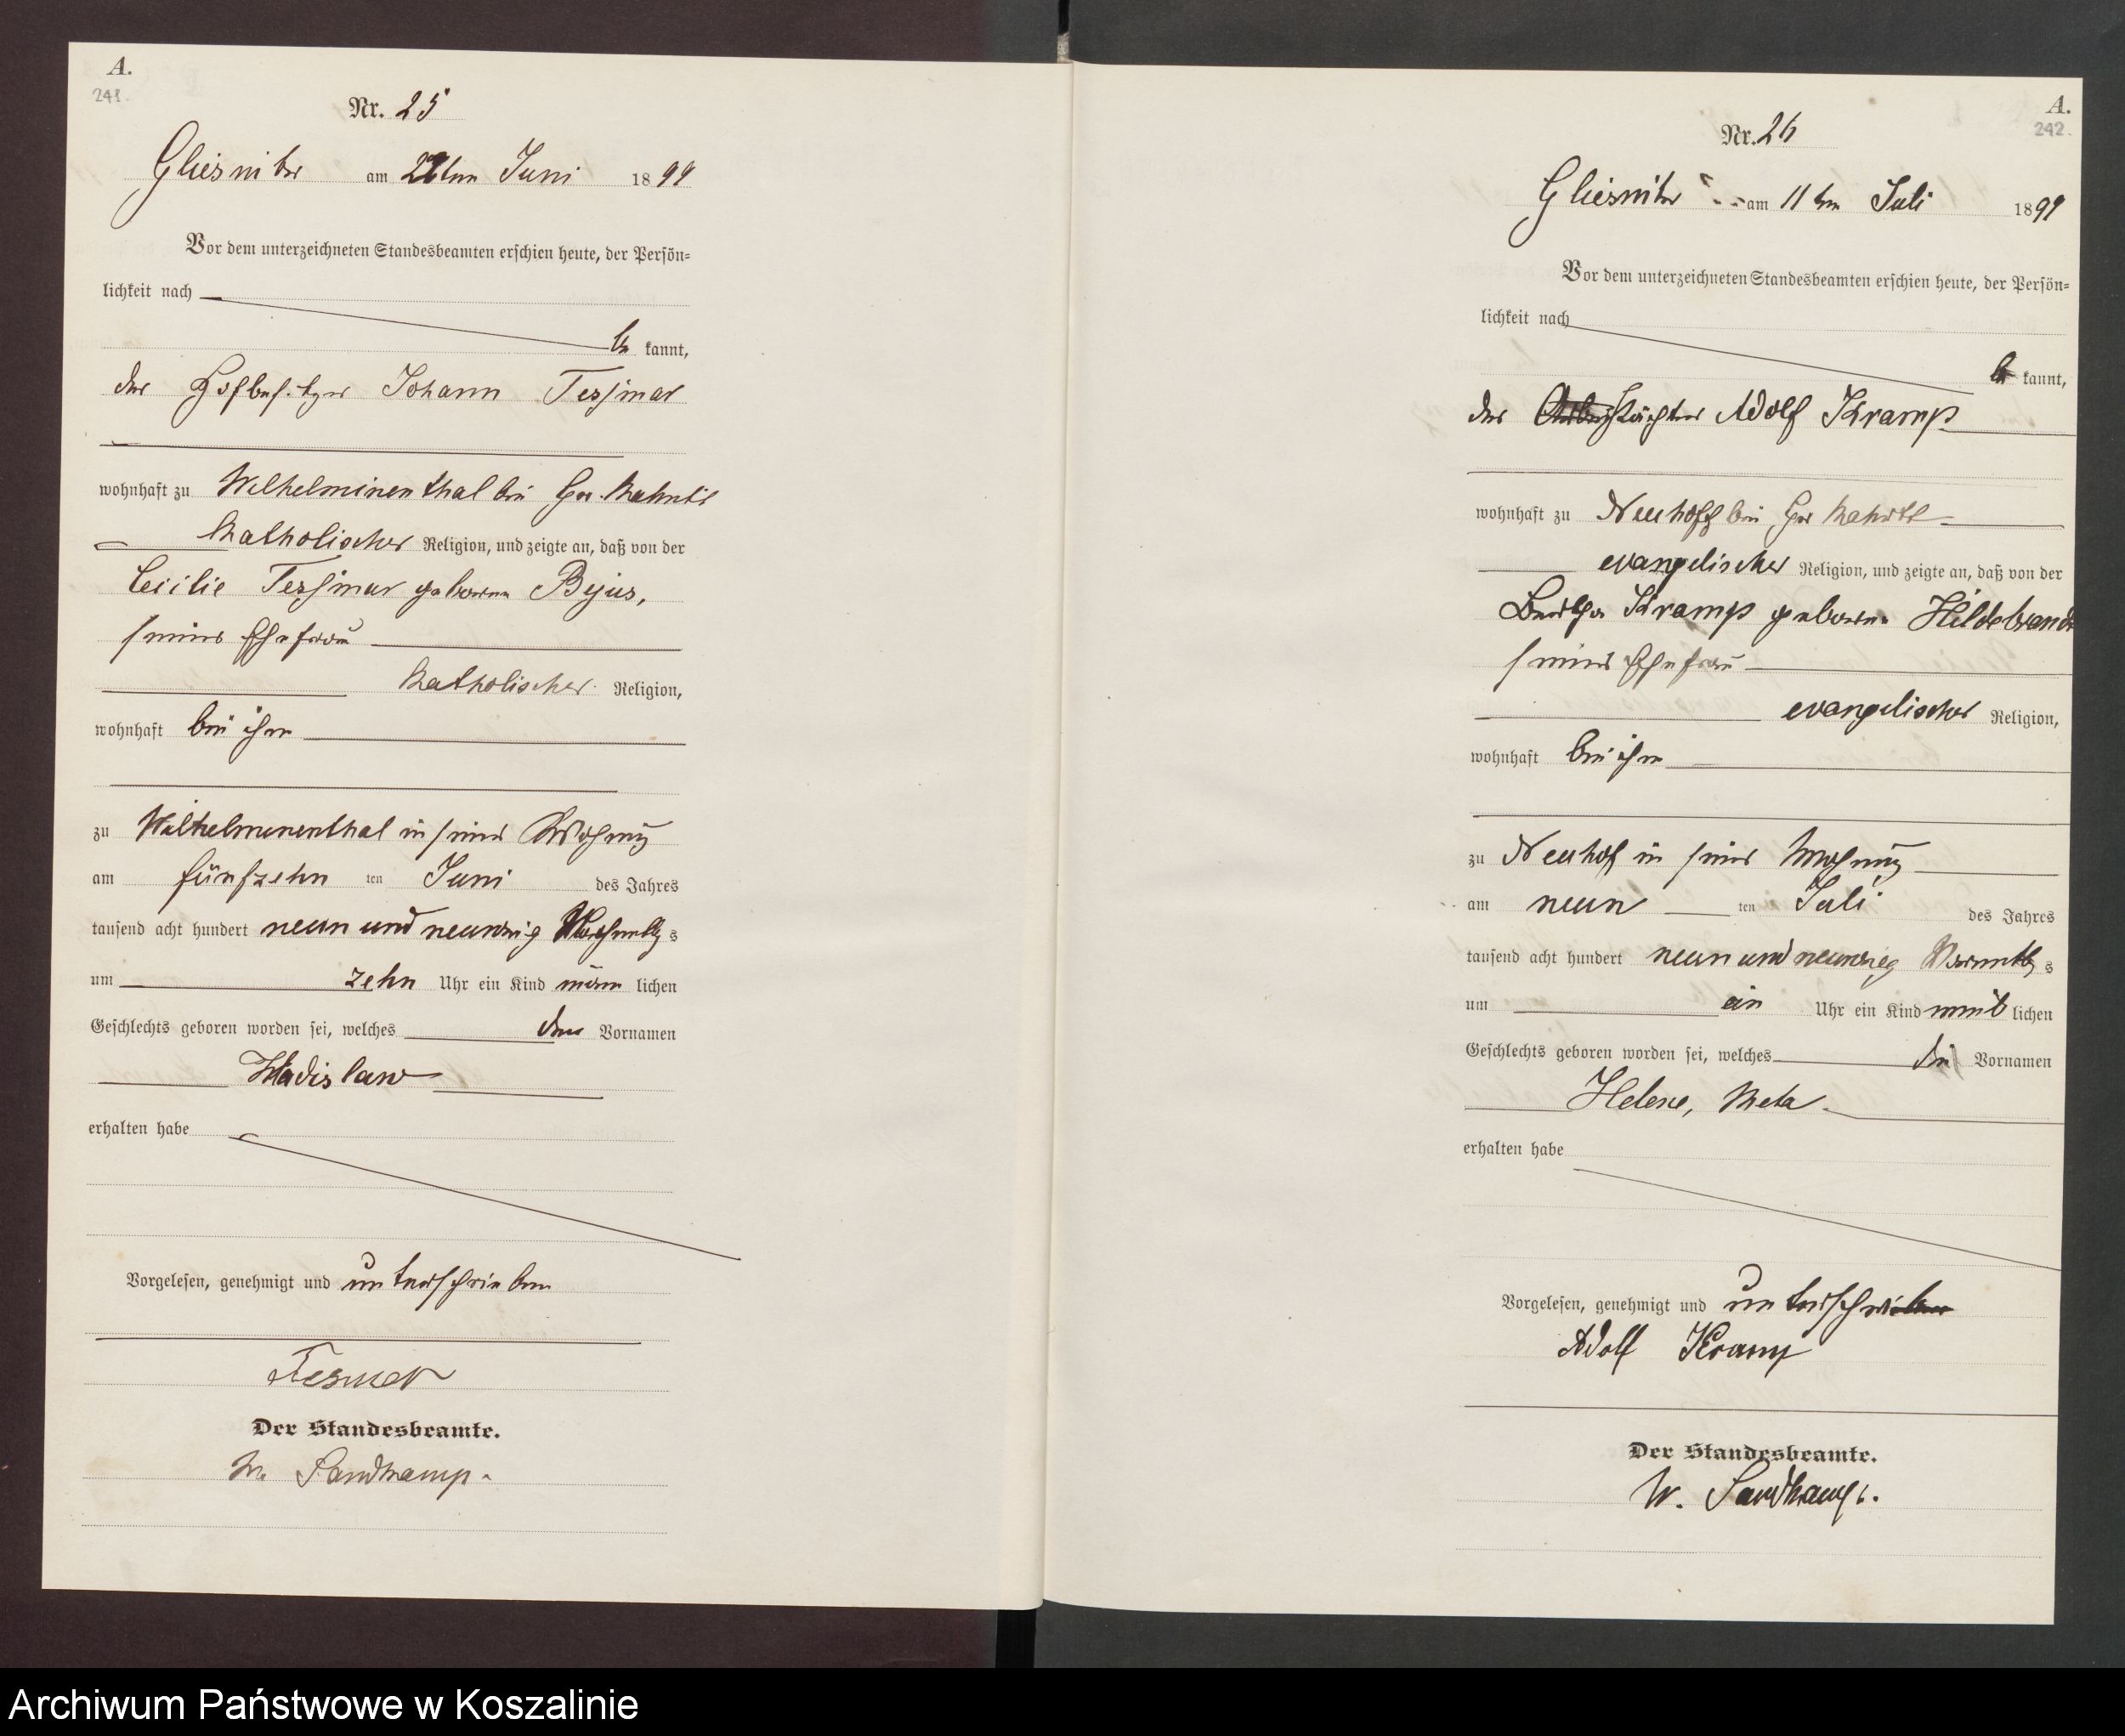 A.
241.
Nr. 25
Gliesnitz am 22ten Juni 1899
Vor dem unterzeichneten Standesbeamten erschien heute, der Persön-
lichkeit nach
be kannt,
der Hofbesitzer Johann Tessmar
wohnhaft zu Wilhelminenthal bei Gr.
katholischer Religion, und zeigte an, daß von der
Cecilie Tessmar geborene
seiner Ehefrau
katholischer Religion,
wohnhaft bei ihm
zu Wilhelminenthal in seiner Wohnung
am fünfzehn ten Juni des Jahres
tausend acht hundert neun und neunzig Vormittags
um zehn Uhr ein Kind männ lichen
Geschlechts geboren worden sei, welches den Vornamen
Wladislaw
erhalten habe
Vorgelesen, genehmigt und unterschrieben
Tesmer
Der Standesbeamte.
W. Sandkamp.
A.
242.
Nr. 26
Gliesnitz am 11ten Juli 1899
Vor dem unterzeichneten Standesbeamten erschien heute, der Persön-
lichkeit nach
be kannt,
der Adolf Kramp
wohnhaft zu Neuhoff bei Gr
evangelischer Religion, und zeigte an, daß von der
Bertha Kramp geborene Hildebrandt
seiner Ehefrau
evangelischer Religion,
wohnhaft bei ihm
zu Neuhof in seiner Wohnung
am neun ten Juli des Jahres
tausend acht hundert neun und neunzig Vormittags
um ein Uhr ein Kind weib lichen
Geschlechts geboren worden sei, welches die Vornamen
Helene, Meta
erhalten habe
Vorgelesen, genehmigt und unterschrieben
Adolf Kramp
Der Standesbeamte.
W. Sandkamp.
Archiwum Państwowe w Koszalinie